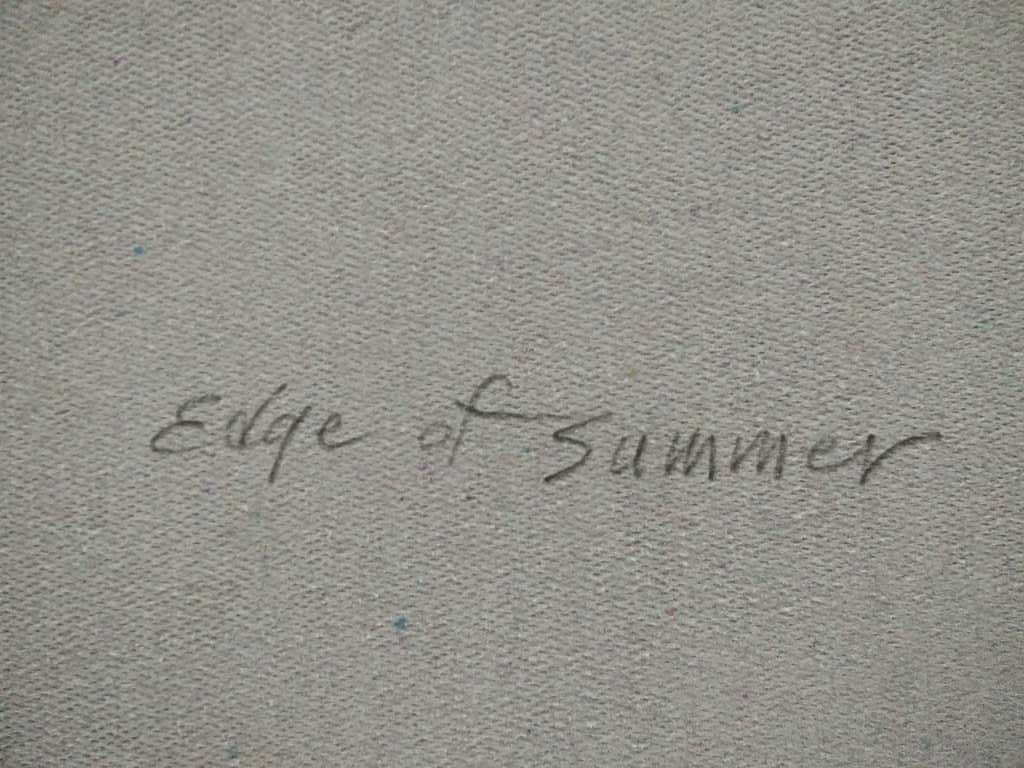 Edge of Summer